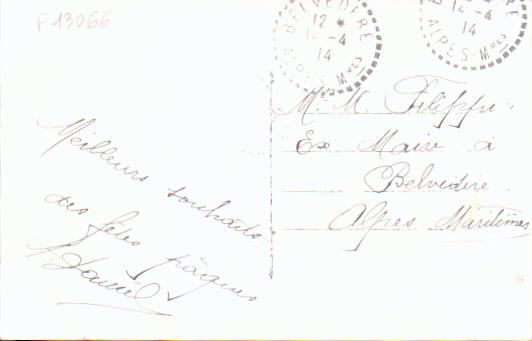 F13066
BELVEDERE
12 *
14-4
14
ALPES-Mmes
14-4
14
ALPES-Mmes
Meilleurs souhaits
des fêtes pâques
M. M. Filippi
Ex Maire à
Belvédère
Alpes Maritimes